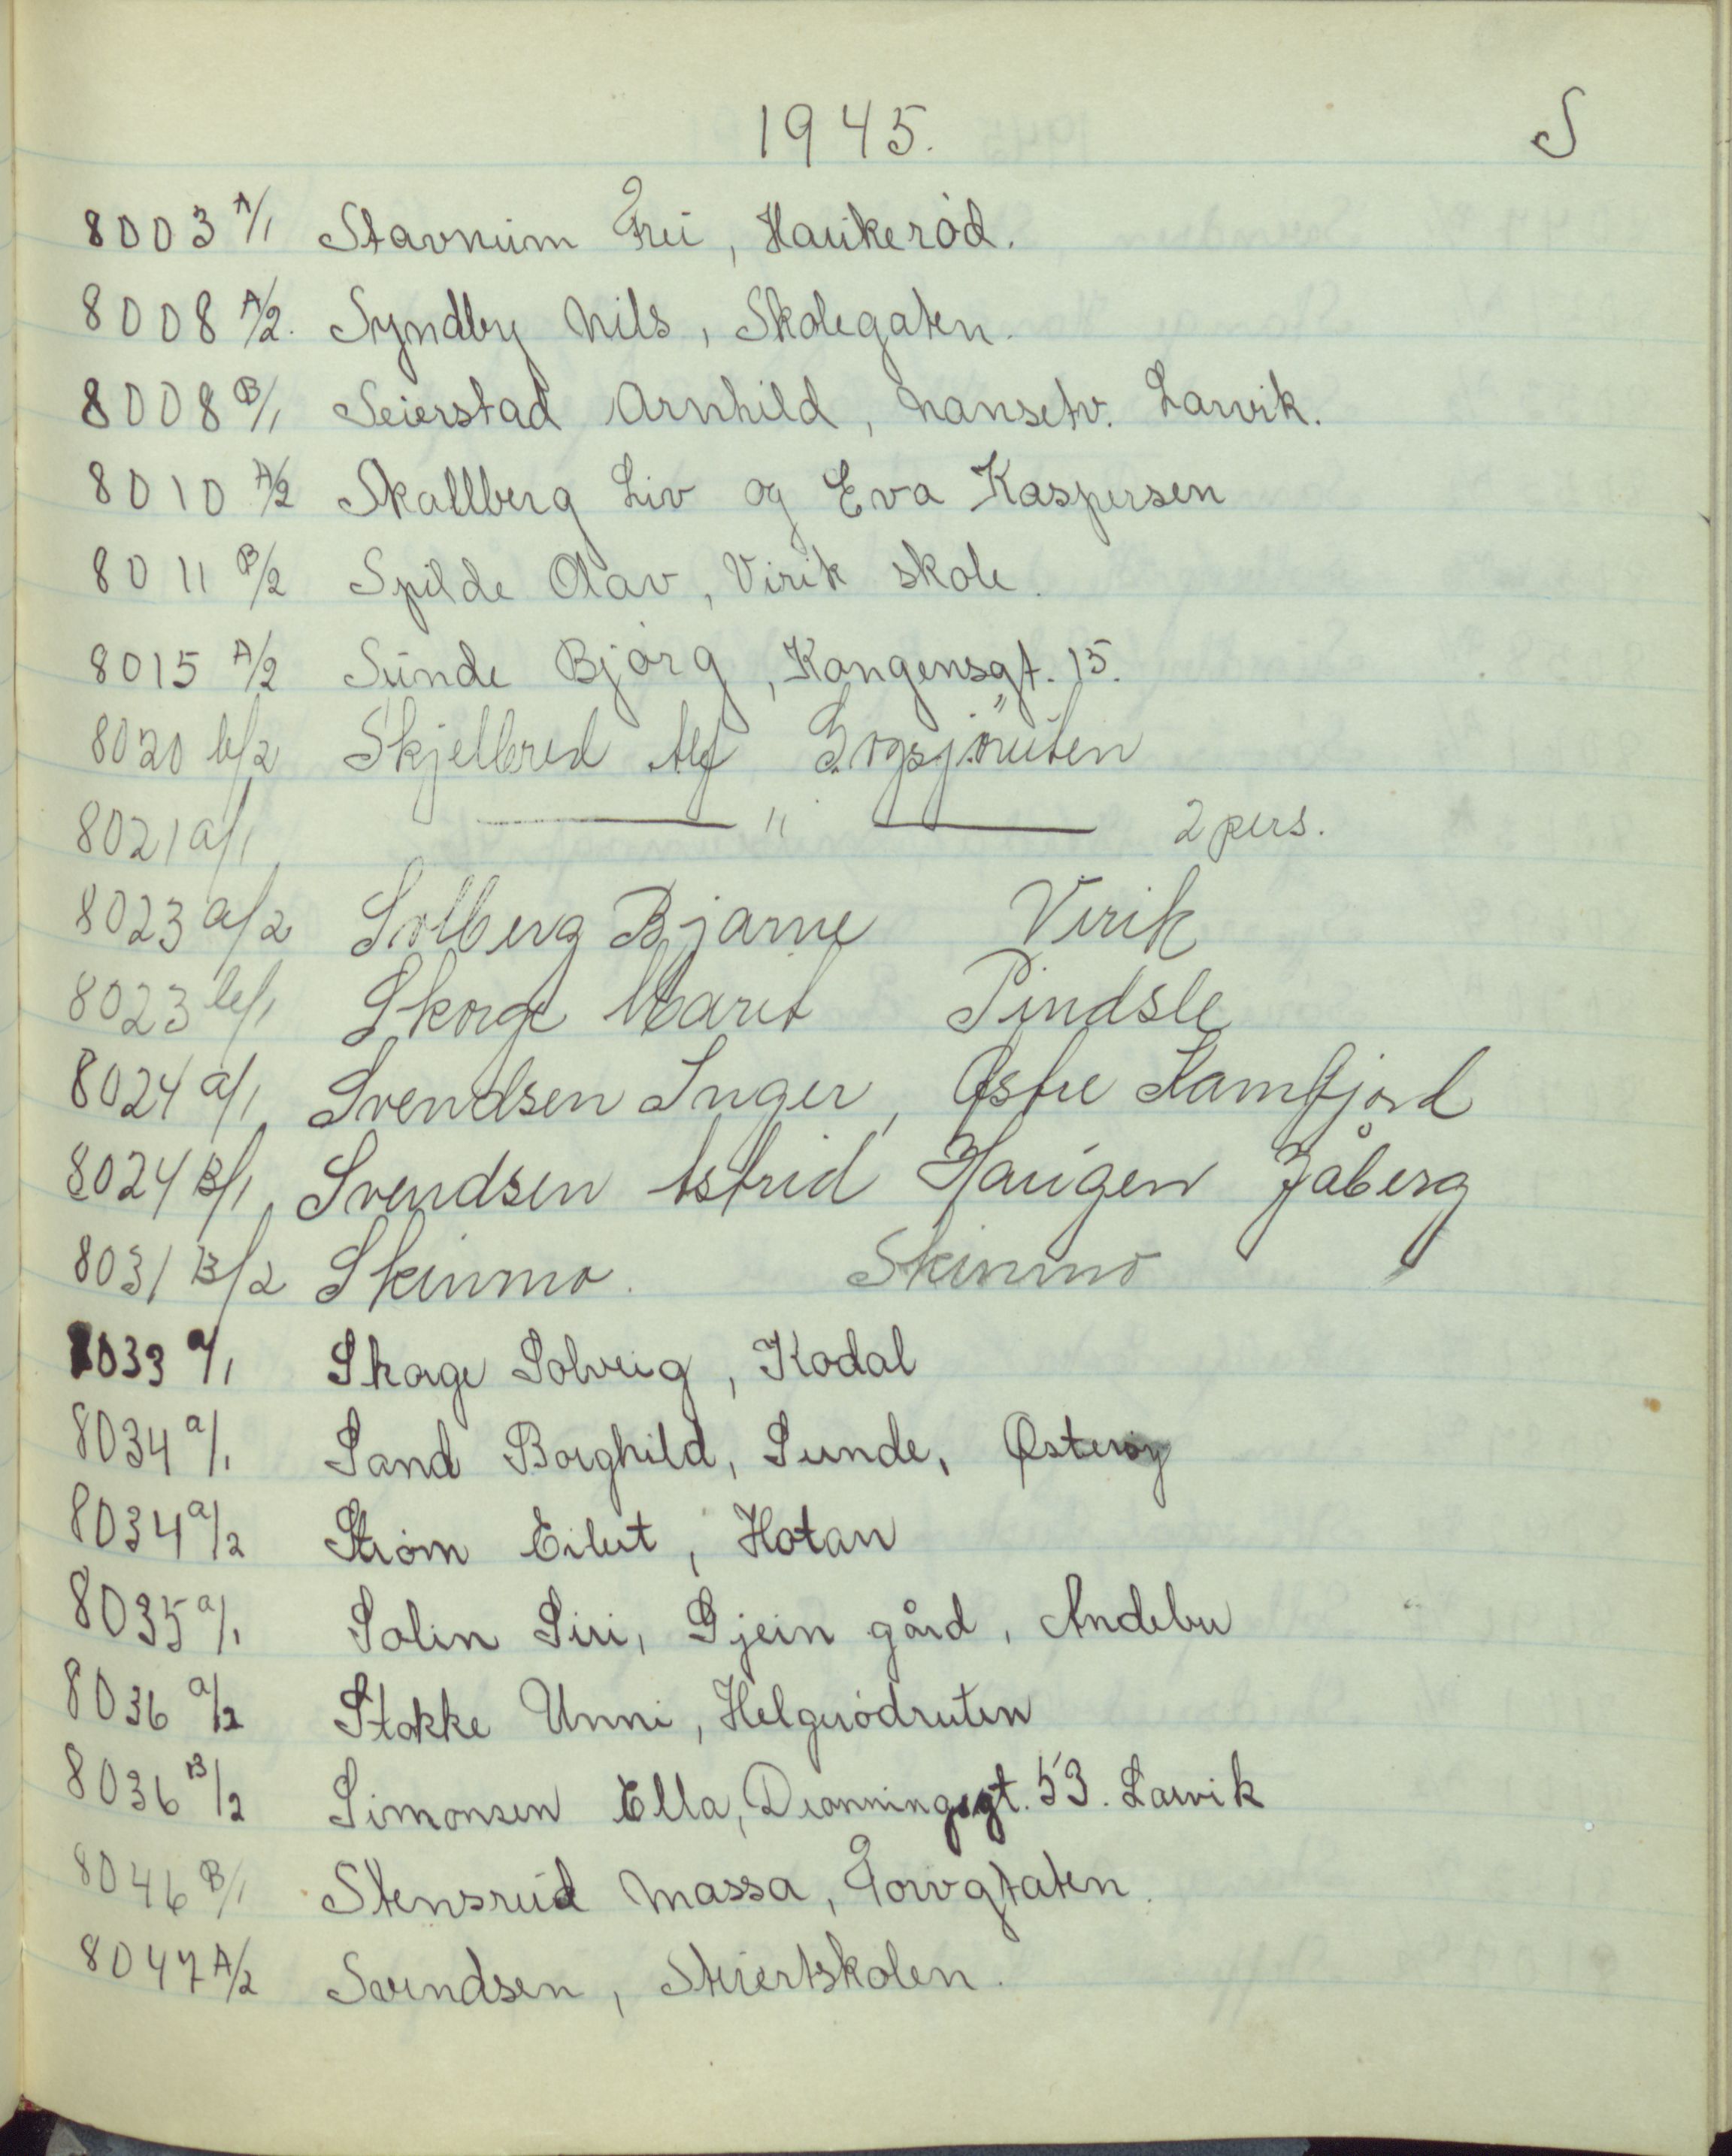 1945.
S
8003 A/1 Stavnum Fru, Haukerød.
8008 A/2. Syndby Nils, Skolegaten.
8008 B/1 Seierstad Arnhild, Nansetv. Larvik.
8010 A/2 Skallberg Liv og Eva Kaspersen
8011 B/2 Spilde Olav, Virik skole.
8015 A/2 Sunde Bjørg, Kongensgt. 15.
8020 b/2 Skjelbred Alf Gogsjøruten
8021 a/1 — " — 2 pers.
8023 a/2 Solberg Bjarne Virik
8023 b/1 Skorge Marit Pindsle
8024 a/1 Svendsen Inger, Østre Kamfjord
8024 B/1 Svendsen Astrid Haugen Jåberg
8031 B/2 Skinmo. Skinmo
8033 a/1 Skorge Solveig, Kodal
8034 a/1 Sand Borghild, Sunde, Østerøy
8034 a/2 Strøm Eilert, Hotan
8035 a/1 Solin Siri, Gjein gård, Andebu
8036 a/2 Stokke Unni, Helgerødruten
8036 B/2 Simonsen Ella, Dronningsgt. 53. Larvik
8046 B/1 Stensrud Massa, Torvgtaten.
8047 A/2 Svendsen, Steiertskolen.